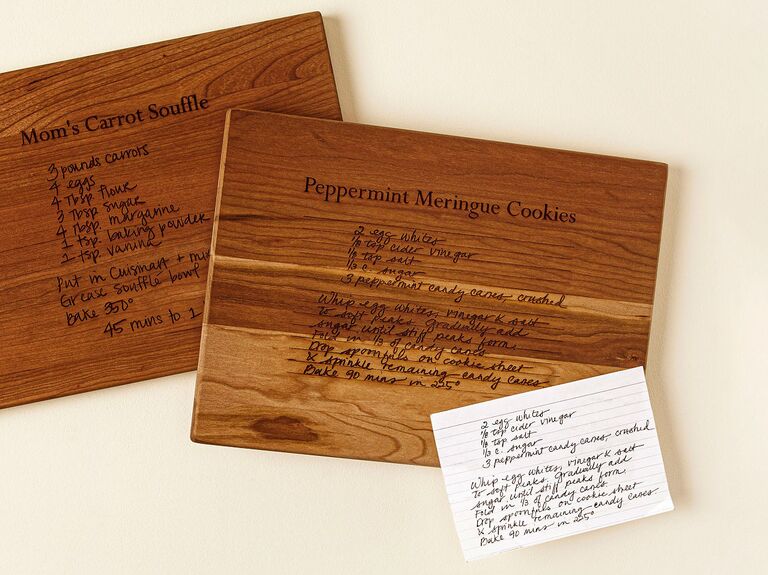 Mom's Carrot Souffle
3 pounds carrots
4 eggs
4 Tbsp flour
3 Tbsp sugar
4 Tbsp. margarine
1 tsp. baking powder
1 tsp vanilla
Put in Cuisinart + mix
Grease souffle bowl
Bake 350°
45 mins to 1
Peppermint Meringue Cookies
2 egg whites
1/8 tsp cider vinegar
1/8 tsp salt
1/3 c. sugar
3 peppermint candy canes, crushed
Whip egg whites, vinegar & salt
To soft peaks. Gradually add
sugar until stiff peaks form.
Fold in 1/3 of candy canes
Drop spoonfuls on cookie sheet
& sprinkle remaining candy canes.
Bake 90 mins in 225°
2 egg whites
1/8 tsp cider vinegar
1/8 tsp salt
1/3 c. sugar
3 peppermint candy canes, crushed
Whip egg whites, vinegar & salt
To soft peaks. Gradually add
sugar until stiff peaks form.
Fold in 1/3 of candy canes.
Drop spoonfuls on cookie sheet
& sprinkle remaining candy canes.
Bake 90 mins in 225°